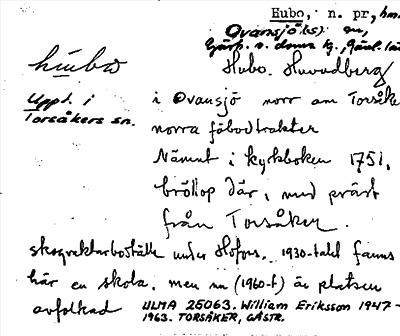 Hubo, n. pr, hm
Ovansjö (s) sn,
Gästr. n. doms lg., Gävl. län
húbω
Hubo. Huvudberg
Uppt. i
i Ovansjö norr om Torsåker
Torsåkers sn.
norra fäbodtrakter
Nämnt i kyrkboken 1751,
bröllop där, med präst
från Torsåker.
skogvaktarboställe under Hofors. 1930-talet fanns
här en skola, men nu (1960-t) är platsen
avfolkad
ULMA 25063. William Eriksson 1947-
1963. TORSÅKER, GÄSTR.